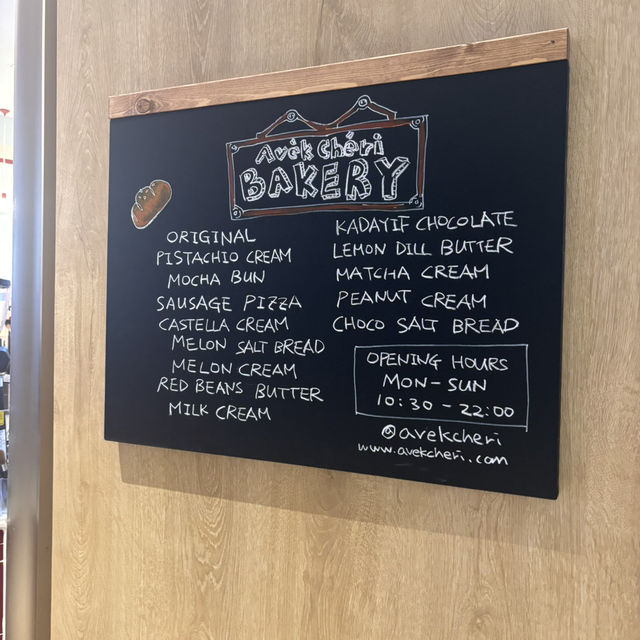 Avék Chéri
BAKERY
ORIGINAL
PISTACHIO CREAM
MOCHA BUN
SAUSAGE PIZZA
CASTELLA CREAM
MELON SALT BREAD
MELON CREAM
RED BEANS BUTTER
MILK CREAM
KADAYIF CHOCOLATE
LEMON DILL BUTTER
MATCHA CREAM
PEANUT CREAM
CHOCO SALT BREAD
OPENING HOURS
MON-SUN
10:30 - 22:00
@avekcheri
www.avekcheri.com